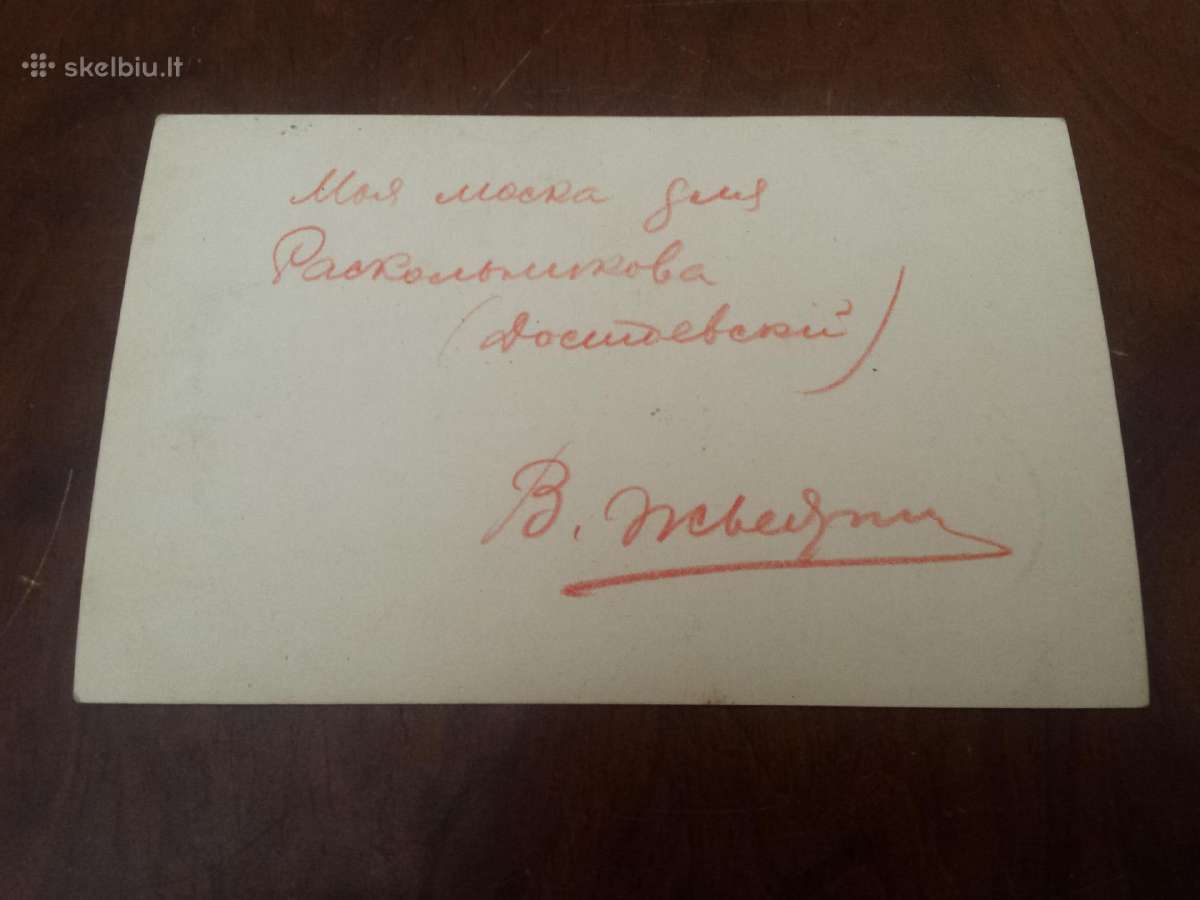 skelbiu.lt
Моя маска для
Раскольникова
(Достоевскій)
В.